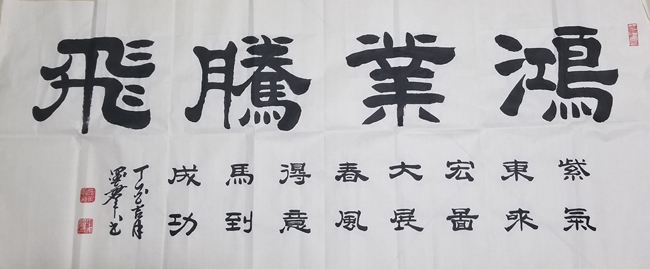 鴻業騰飛
紫氣
東來
宏圖
大展
春風
得意
馬到
成功